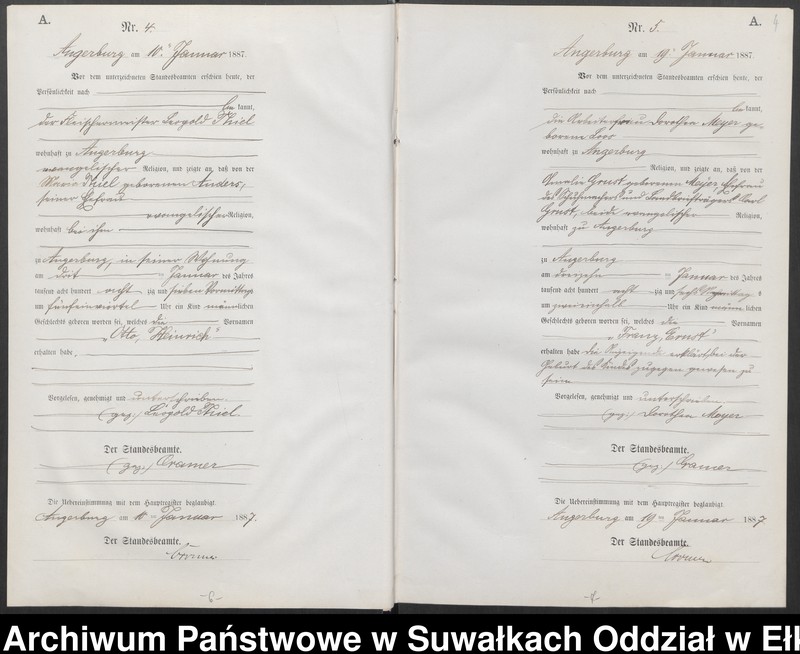 A.
Nr. 4.
Angerburg am 10. Januar 1887.
Vor dem unterzeichneten Standesbeamten erschien heute, der
Persönlichkeit nach
kannt,
der Fleischermeister Leopold Thiel
wohnhaft zu Angerburg
evangelischer Religion, und zeigte an, daß von der
Thiel geborenen Anders,
seiner Ehefrau
evangelischer Religion,
wohnhaft bei ihm
zu Angerburg, in seiner Wohnung
am Januar des Jahres
tausend acht hundert acht zig und sieben Vormittags
um Uhr ein Kind männlichen
Geschlechts geboren worden sei, welches die Vornamen
„Otto, Heinrich“
erhalten habe.
Vorgelesen, genehmigt und unterschrieben
(gez.) Leopold Thiel.
Der Standesbeamte.
(gez.) Cramer
Die Uebereinstimmung mit dem Hauptregister beglaubigt.
Angerburg am 10ten Januar 1887.
Der Standesbeamte.
Cramer
A.
Nr. 5.
Angerburg am 19. Januar 1887
Vor dem unterzeichneten Standesbeamten erschien heute, der
Persönlichkeit nach
kannt,
die Arbeiterfrau Dorothea Meyer ge-
borene
wohnhaft zu Angerburg
Religion, und zeigte an, daß von der
geborenen Meyer Ehefrau
des Schuhmachers und Carl
evangelischer Religion,
wohnhaft zu Angerburg
zu Angerburg
am dreizehn Januar des Jahres
tausend acht hundert acht zig und
um Uhr ein Kind männlichen
Geschlechts geboren worden sei, welches die Vornamen
„Franz, Ernst“
erhalten habe die Anzeigende erklärt bei der
Geburt des Kindes zugegen gewesen zu
sein
Vorgelesen, genehmigt und unterschrieben
(gez.) Dorothea Meyer
Der Standesbeamte.
(gez.) Cramer
Die Uebereinstimmung mit dem Hauptregister beglaubigt.
Angerburg am 19ten Januar 1887
Der Standesbeamte.
Cramer
Archiwum Państwowe w Suwałkach Oddział w Ełk